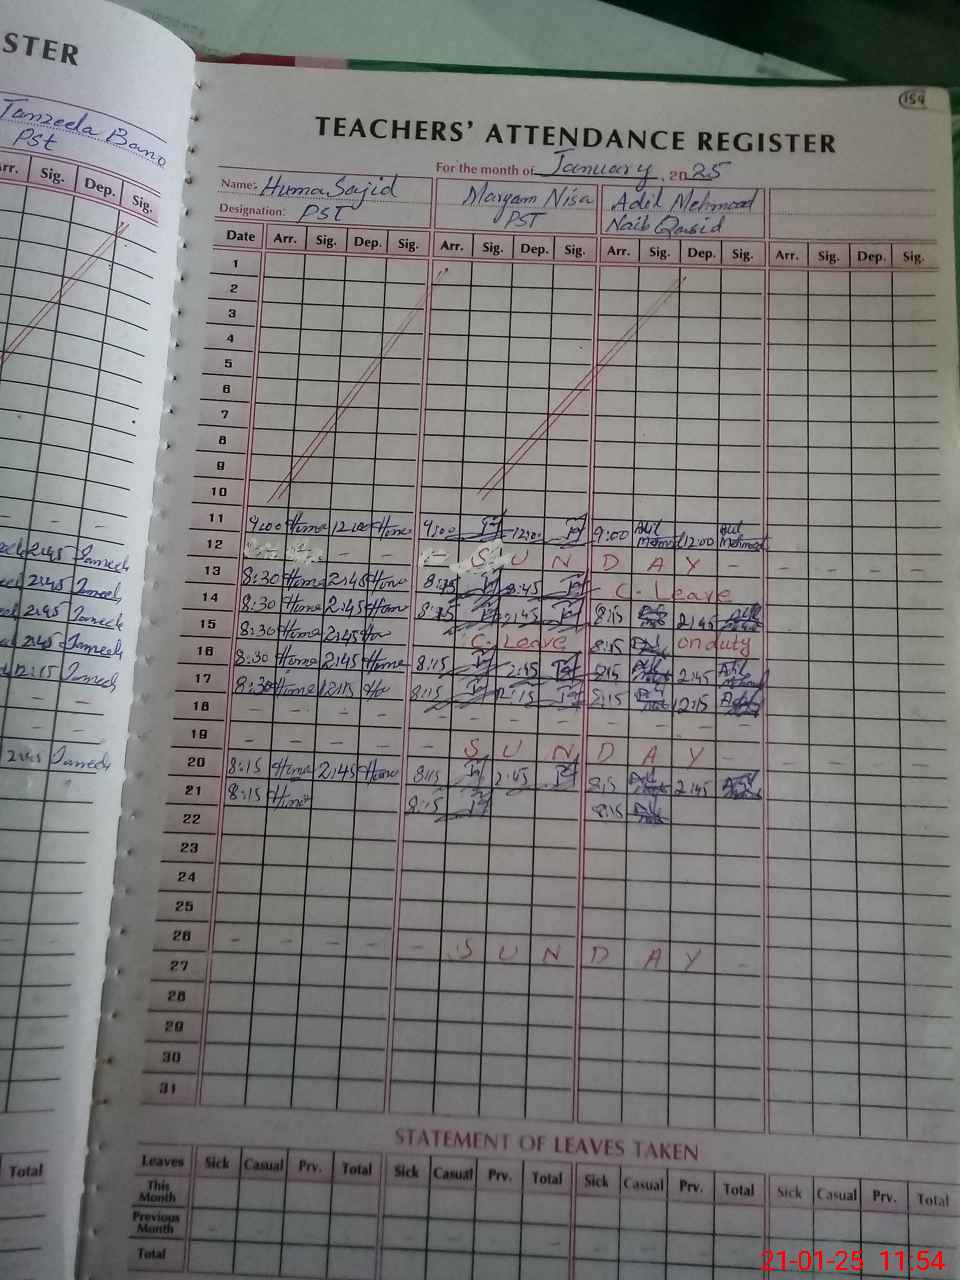 STER
Tanzeela Bano
PSt
Arr. Sig. Dep. Sig.
2:45
2:45
2:45
2:45
12:15
2:45
Total
154
TEACHERS' ATTENDANCE REGISTER
For the month of January, 2025
Name: Huma Sajid Maryam Nisa Adil Mehmood
Designation: PST PST Naib Qasid
Date Arr. Sig. Dep. Sig. Arr. Sig. Dep. Sig. Arr. Sig. Dep. Sig. Arr. Sig. Dep. Sig.
1
2
3
4
5
6
7
8
9
10
11 9:00 Huma 12:00 Huma 9:00 12:00 9:00 Adil Mehmood 12:00 Adil Mehmood
12 - - - S U N D A Y - - - - -
13 8:30 Huma 2:45 Huma 8:15 2:45 C. Leave
14 8:30 Huma 2:45 Huma 8:15 2:45 8:15 2:45
15 8:30 Huma 2:45 C. Leave 8:15 on duty
16 8:30 Huma 2:45 Huma 8:15 2:45 8:15 2:45
17 8:30 Huma 12:15 8:15 12:15 8:15 12:15
18 - - - - - - - - - - -
19 - - - - - S U N D A Y -
20 8:15 Huma 2:45 Huma 8:15 2:45 8:15 2:45
21 8:15 Huma 8:15 8:15
22
23
24
25
26 - - - - - S U N D A Y -
27
28
29
30
31
STATEMENT OF LEAVES TAKEN
Leaves Sick Casual Prv. Total Sick Casual Prv. Total Sick Casual Prv. Total Sick Casual Prv. Total
This Month
Previous Month
Total
21-01-25 11:54